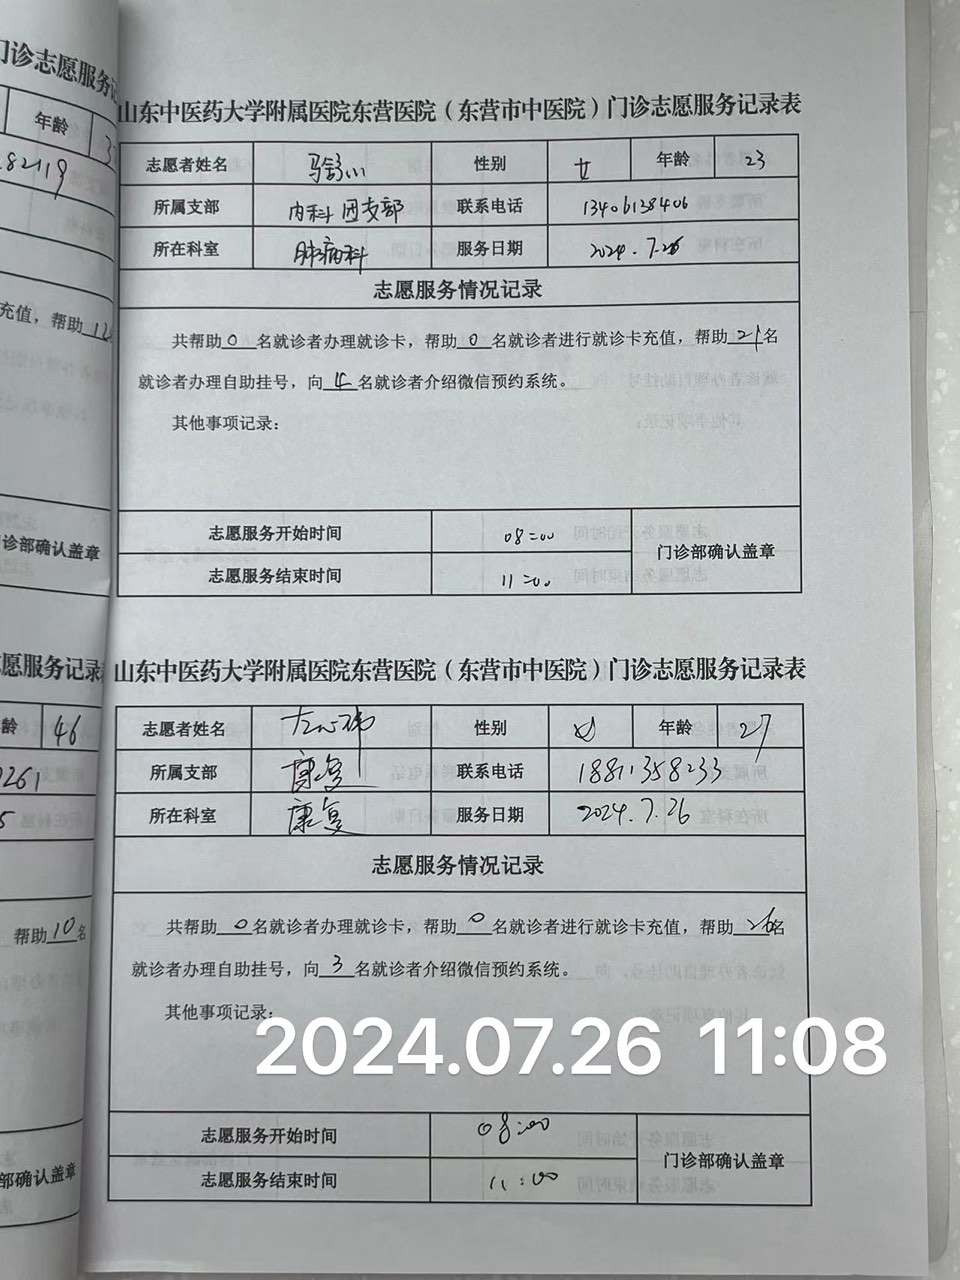 门诊志愿服务记
年龄
82119
充值，帮助
诊部确认盖章
愿服务记录
龄 46
0261
5
帮助10名
部确认盖章
山东中医药大学附属医院东营医院（东营市中医院）门诊志愿服务记录表
志愿者姓名 性别 女 年龄 23
所属支部 内科团支部 联系电话 13406138406
所在科室 肺病科 服务日期 2024.7.26
志愿服务情况记录
共帮助0名就诊者办理就诊卡，帮助0名就诊者进行就诊卡充值，帮助21名
就诊者办理自助挂号，向4名就诊者介绍微信预约系统。
其他事项记录：
志愿服务开始时间 08:00
门诊部确认盖章
志愿服务结束时间 11:00
山东中医药大学附属医院东营医院（东营市中医院）门诊志愿服务记录表
志愿者姓名 性别 女 年龄 27
所属支部 康复 联系电话 18811358233
所在科室 康复 服务日期 2024.7.26
志愿服务情况记录
共帮助0名就诊者办理就诊卡，帮助0名就诊者进行就诊卡充值，帮助26名
就诊者办理自助挂号，向3名就诊者介绍微信预约系统。
其他事项记录：
2024.07.26 11:08
志愿服务开始时间 08:00
门诊部确认盖章
志愿服务结束时间 11:00